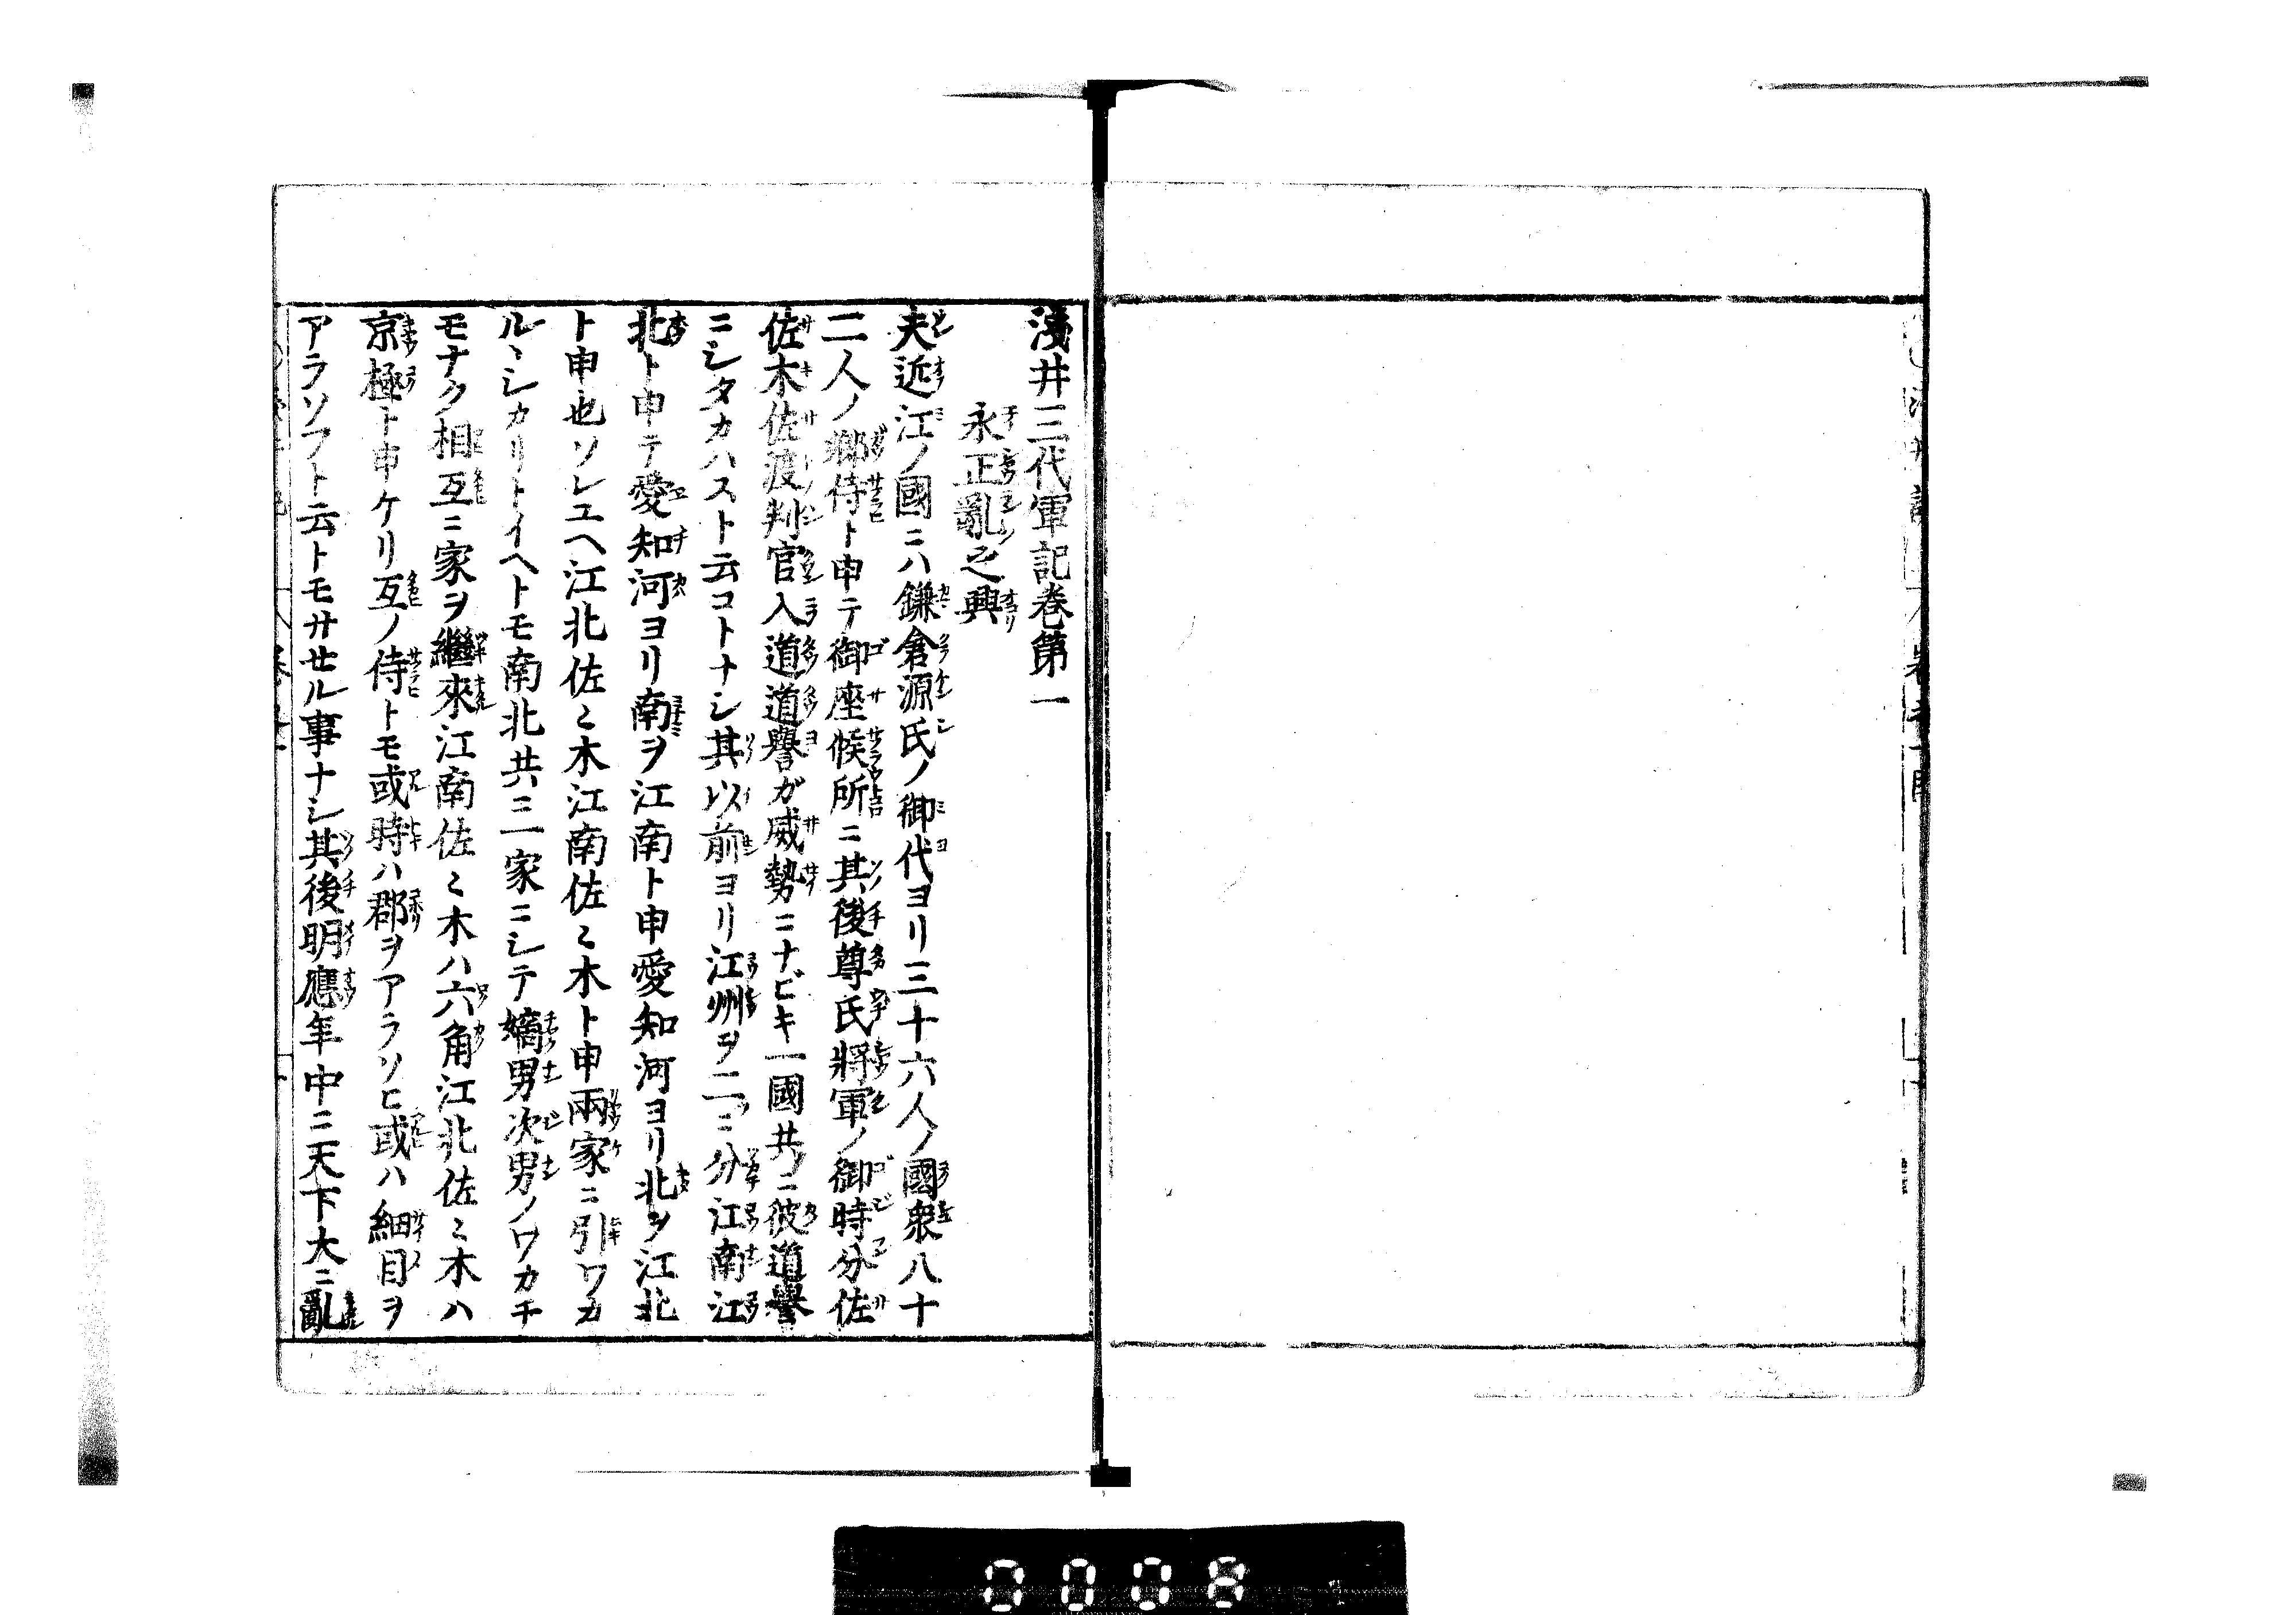 淺井三代軍記卷第一
永正亂之興
夫近江ノ國ニハ鎌倉源氏ノ御代ヨリ三十六人ノ國衆八十
二人ノ郷侍ト申テ御座候所ニ其後尊氏將軍ノ御時分佐
佐木佐渡判官入道道譽ガ威勢ニナビキ一國共ニ彼道譽
ニシタカハスト云コトナシ其以前ヨリ江州ヲ二ツニ分江南江
北ト申テ愛知河ヨリ南ヲ江南ト申愛知河ヨリ北ヲ江北
ト申也ソレユヘ江北佐々木江南佐々木ト申兩家ニ引ワカ
ルヽシカリトイヘトモ南北共ニ一家ニシテ嫡男次男ノワカチ
モナク相互ニ家ヲ繼來江南佐々木ハ六角江北佐々木ハ
京極ト申ケリ互ノ侍トモ或時ハ郡ヲアラソヒ或ハ細目ヲ
アラソフト云トモサセル事ナシ其後明應年中ニ天下大ニ亂
0008